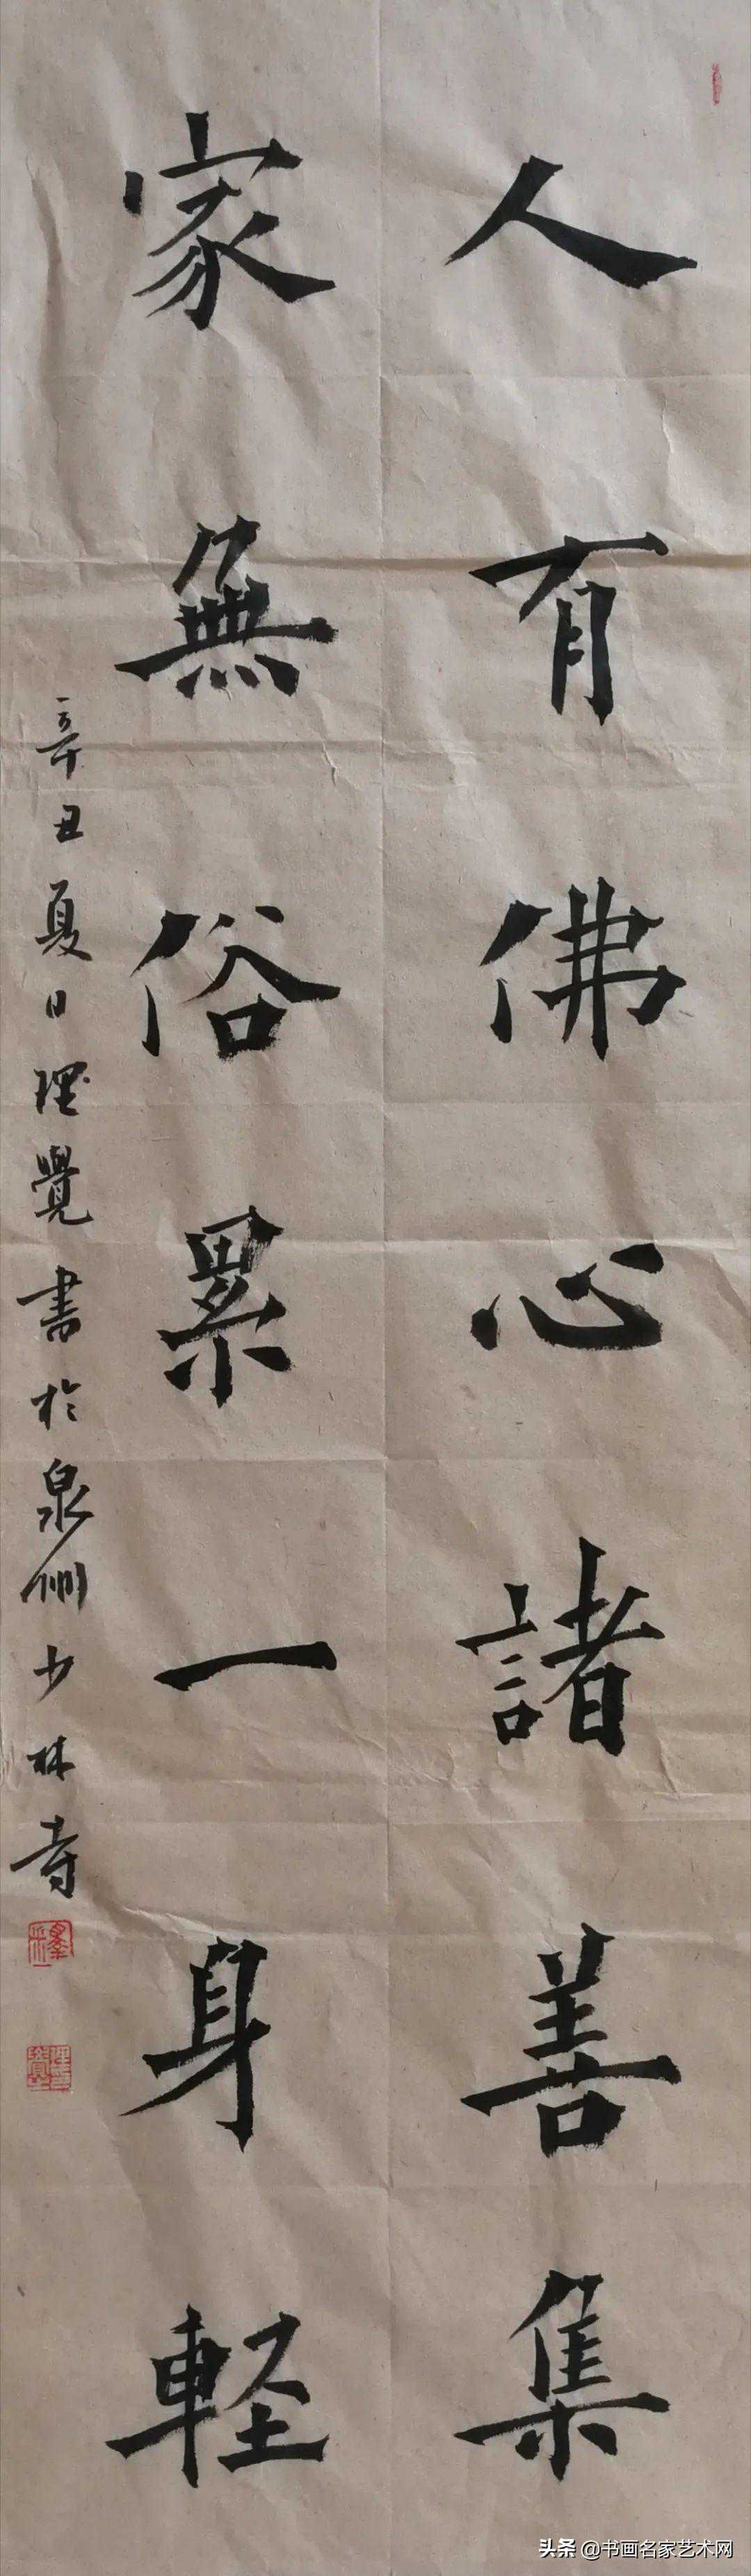 人有佛心諸善集
家無俗累一身軽
辛丑夏日理覺書於泉州少林寺
头条 @书画名家艺术网